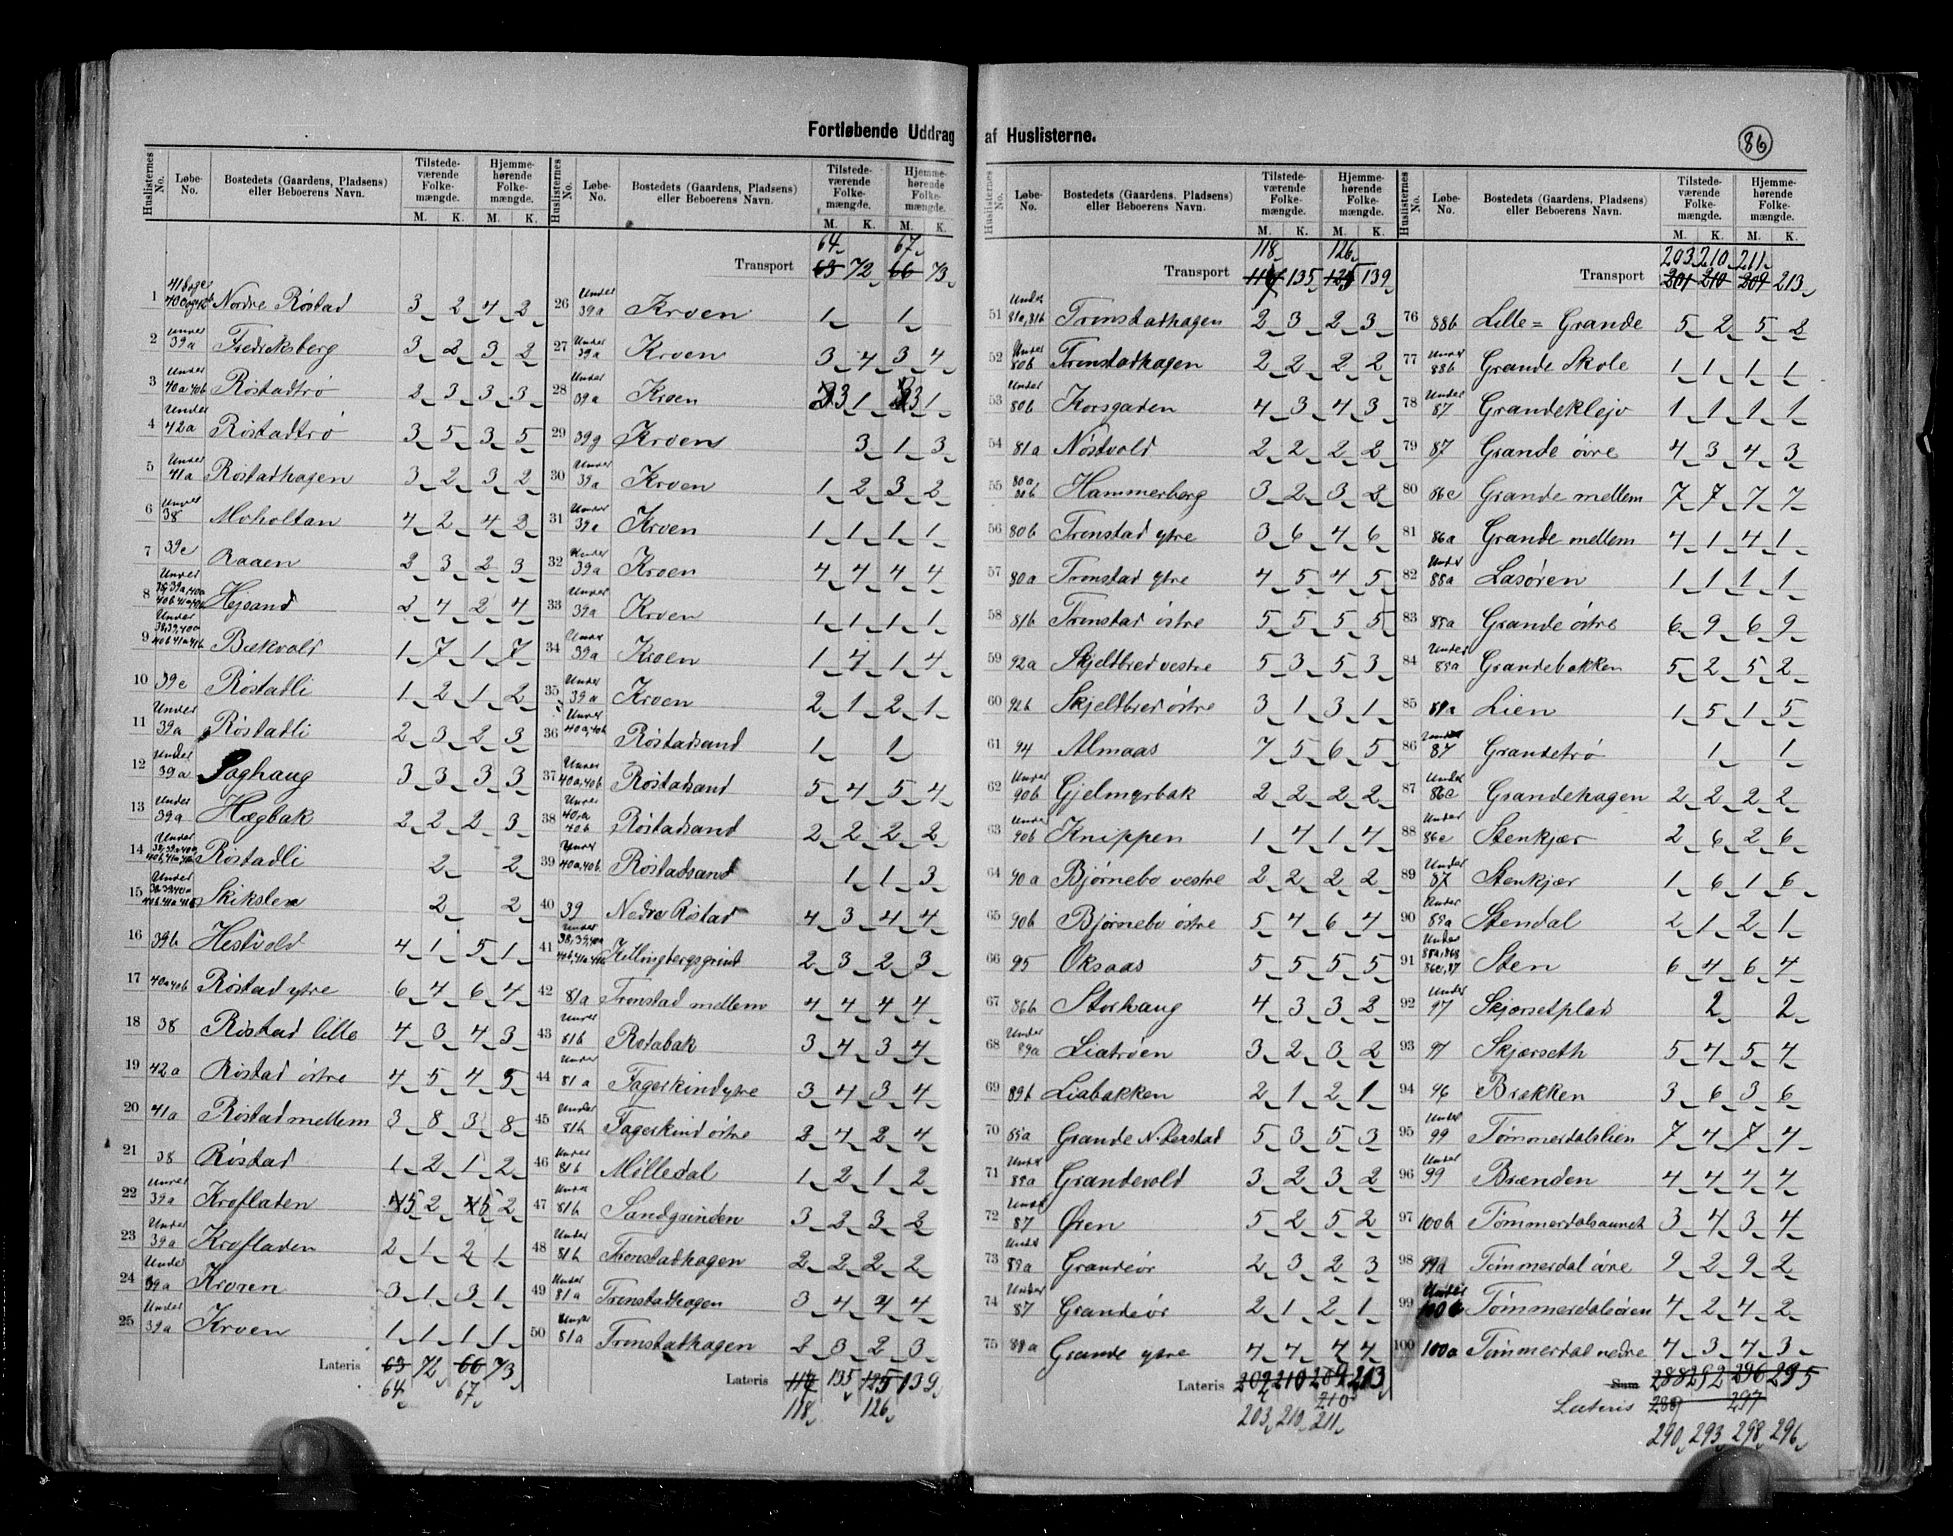 Fortløbende Uddrag af Huslisterne.
86
Huslisternes No. Løbe-No. Bostedets (Gaardens, Pladsens) eller Beboerens Navn. Tilstedeværende Folkemængde. M. K. Hjemmehørende Folkemængde. M. K.
1 Nordre Røstad 3 2 4 2
2 Under 39a Fredriksberg 3 2 3 2
3 Under 40a 40b Røstadtrø 2 3 3 3
4 Under 42a Røstadtrø 3 5 3 5
5 Under 41a Røstadhagen 3 2 3 2
6 Under 38 Moholtan 4 2 4 2
7 39c Raaen 2 3 2 3
8 Under Hejsand 2 4 2 4
9 Under Bækvold 1 7 1 7
10 39e Røstadli 1 2 1 2
11 Under 39a Røstadli 2 3 2 3
12 Under 39a Saghaug 3 3 3 3
13 Under 39a Hægbak 2 2 2 3
14 Under Røstadli 2 2
15 Under 2 2
16 39b Hestvold 4 1 5 1
17 40a 40b Røstad ytre 6 4 6 4
18 38 Røstad lille 4 3 4 3
19 42a Røstad østre 4 5 4 5
20 41a Røstad mellem 3 8 3 8
21 38 Røstad 1 2 1 2
22 Under 39a Krofladen 5 2 5 2
23 Under 39a Krofladen 2 1 2 1
24 Under 39a Kroen 3 1 3 1
25 Under 39a Kroen 1 1 1 1
Lateris 63 72 66 73
64 67
Huslisternes No. Løbe-No. Bostedets (Gaardens, Pladsens) eller Beboerens Navn. Tilstedeværende Folkemængde. M. K. Hjemmehørende Folkemængde. M. K.
64 67
Transport 63 72 66 73
26 Under 39a Kroen 1 1
27 Under 39a Kroen 3 4 3 4
28 Under 39a Kroen 3 1 3 1
29 39g Kroen 3 1 3
30 Under 39a Kroen 1 2 3 2
31 Under 39e Kroen 1 1 1 1
32 Under 39a Kroen 4 4 4 4
33 Under 39a Kroen 1 1 1 1
34 Under 39a Kroen 1 4 1 4
35 Under 39a Kroen 2 1 2 1
36 Under 40a, 40b Røstadsand 1 1
37 Under 40a, 40b Røstadsand 5 4 5 4
38 Under 40a 40b Røstadsand 2 2 2 2
39 Under 40a, 40b Røstadsand 1 1 3
40 39 Nedre Røstad 4 3 4 4
41 Under Killingbergsgrind 2 3 2 3
42 81a Tronstad mellem 4 4 4 4
43 Under 81b Rotabak 3 4 3 4
44 Under 81a Fagerkind ytre 3 4 3 4
45 Under 81b Fagerkind østre 2 4 2 4
46 Under 81b Mølledal 1 2 1 2
47 Under 81b Sandgrinden 3 2 3 2
48 Under 81b Tronstadhagen 2 2 2 2
49 Under 81a Tronstadhagen 3 4 4 4
50 Under 81a Tronstadhagen 2 3 2 3
Lateris 135 125 139
118 126
Huslisternes No. Løbe-No. Bostedets (Gaardens, Pladsens) eller Beboerens Navn. Tilstedeværende Folkemængde. M. K. Hjemmehørende Folkemængde. M. K.
118 126
Transport 135 125 139
51 Under 81a, 81b Tronstadhagen 2 3 2 3
52 Under 80b Tronstadhagen 2 2 2 2
53 Under 80b Korsgaden 4 3 4 3
54 81a Nøstvold 2 2 2 2
55 80a Hammerberg 3 2 3 2
56 80b Tronstad ytre 3 6 4 6
57 80a Tronstad ytre 4 5 4 5
58 81b Tronstad østre 5 5 5 5
59 92a Skjeltbred vestre 5 3 5 3
60 92b Skjeltbred østre 3 1 3 1
61 94 Almaas 7 5 6 5
62 Under 90b Gjelmyrbak 2 2 2 2
63 Under 90b Knippen 1 4 1 4
64 90a Bjørnebo vestre 2 2 2 2
65 90b Bjørnebo østre 5 4 6 4
66 95 Oksaas 5 5 5 5
67 86b Storhaug 4 3 3 2
68 Under 89a Liatrøen 3 2 3 2
69 89b Liabakken 2 1 2 1
70 85a Grande N. Perstad 5 3 5 3
71 Under 85a Grandevold 3 2 3 2
72 Under 87 Øren 5 2 5 2
73 Under 89a Grandeør 2 3 2 3
74 Under 87 Grandeør 2 1 2 1
75 88a Grande ytre 4 4 4 4
Lateris 202 210 209 213
210
203 210 211
Huslisternes No. Løbe-No. Bostedets (Gaardens, Pladsens) eller Beboerens Navn. Tilstedeværende Folkemængde. M. K. Hjemmehørende Folkemængde. M. K.
203 210 211
Transport 201 210 209 213
76 88b Lille=Grande 5 2 5 2
77 Under 88b Grande Skole 1 1 1 1
78 Under 87 Grandeklejv 1 1 1 1
79 87 Grande øvre 4 3 4 3
80 86c Grande mellem 7 7 7 7
81 86a Grande mellem 4 1 4 1
82 Under 88a Lasøren 1 1 1 1
83 85a Grande østre 6 9 6 9
84 Under 85a Grandebakken 5 2 5 2
85 89a Lien 1 5 1 5
86 Under 87 Grandetrø 1 1
87 Under 86c Grandehagen 2 2 2 2
88 Under 86c Stenkjær 2 6 2 6
89 Under 87 Stenkjær 1 6 1 6
90 Under 85a Stendal 2 1 2 1
91 Under 86c, 87 Sten 6 4 6 4
92 Under 97 Skjærsetplad 2 2
93 97 Skjærseth 5 4 5 4
94 96 Brækken 3 6 3 6
95 Under 99 Tømmerdalslien 7 4 7 4
96 Under 99 Brænden 4 4 4 4
97 100b Tømmerdalsaunet 3 4 3 4
98 99a Tømmerdal øvre 9 2 9 2
99 Under 100b Tømmerdalsøren 4 2 4 2
100 100a Tømmerdal nedre 4 3 4 3
Sum 288 292 296 295
Lateris 289 297
290 293 298 296